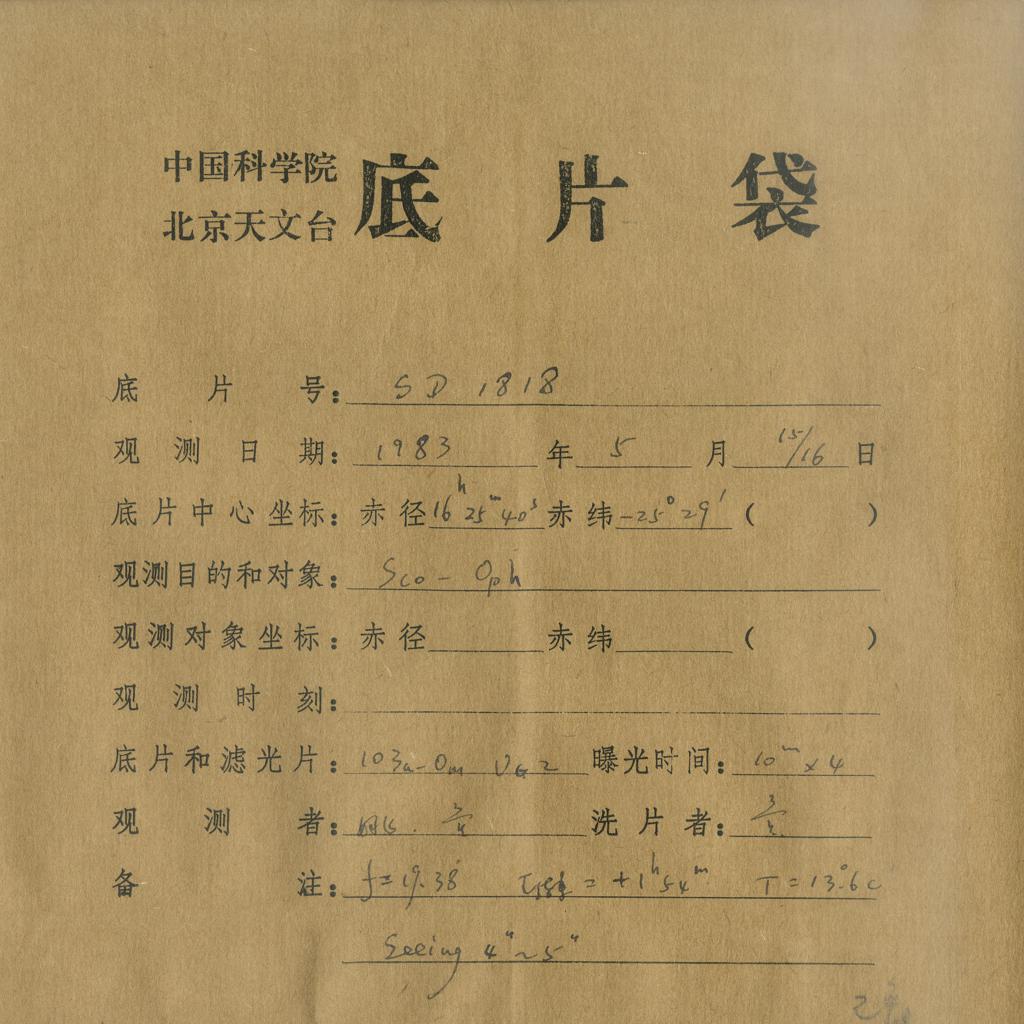 中国科学院
北京天文台
底片袋
底片号: SD 1818
观测日期: 1983 年 5 月 15/16 日
底片中心坐标: 赤径 16h 25m 40s 赤纬 -25° 29′ ( )
观测目的和对象: Sco - Oph
观测对象坐标: 赤径 赤纬 ( )
观测时刻:
底片和滤光片: 103a-Om UG2 曝光时间: 10m x 4
观测者: 洗片者:
备注: f=19.38 = +1h 54m T=13°.6 C
Seeing 4" ~ 5"